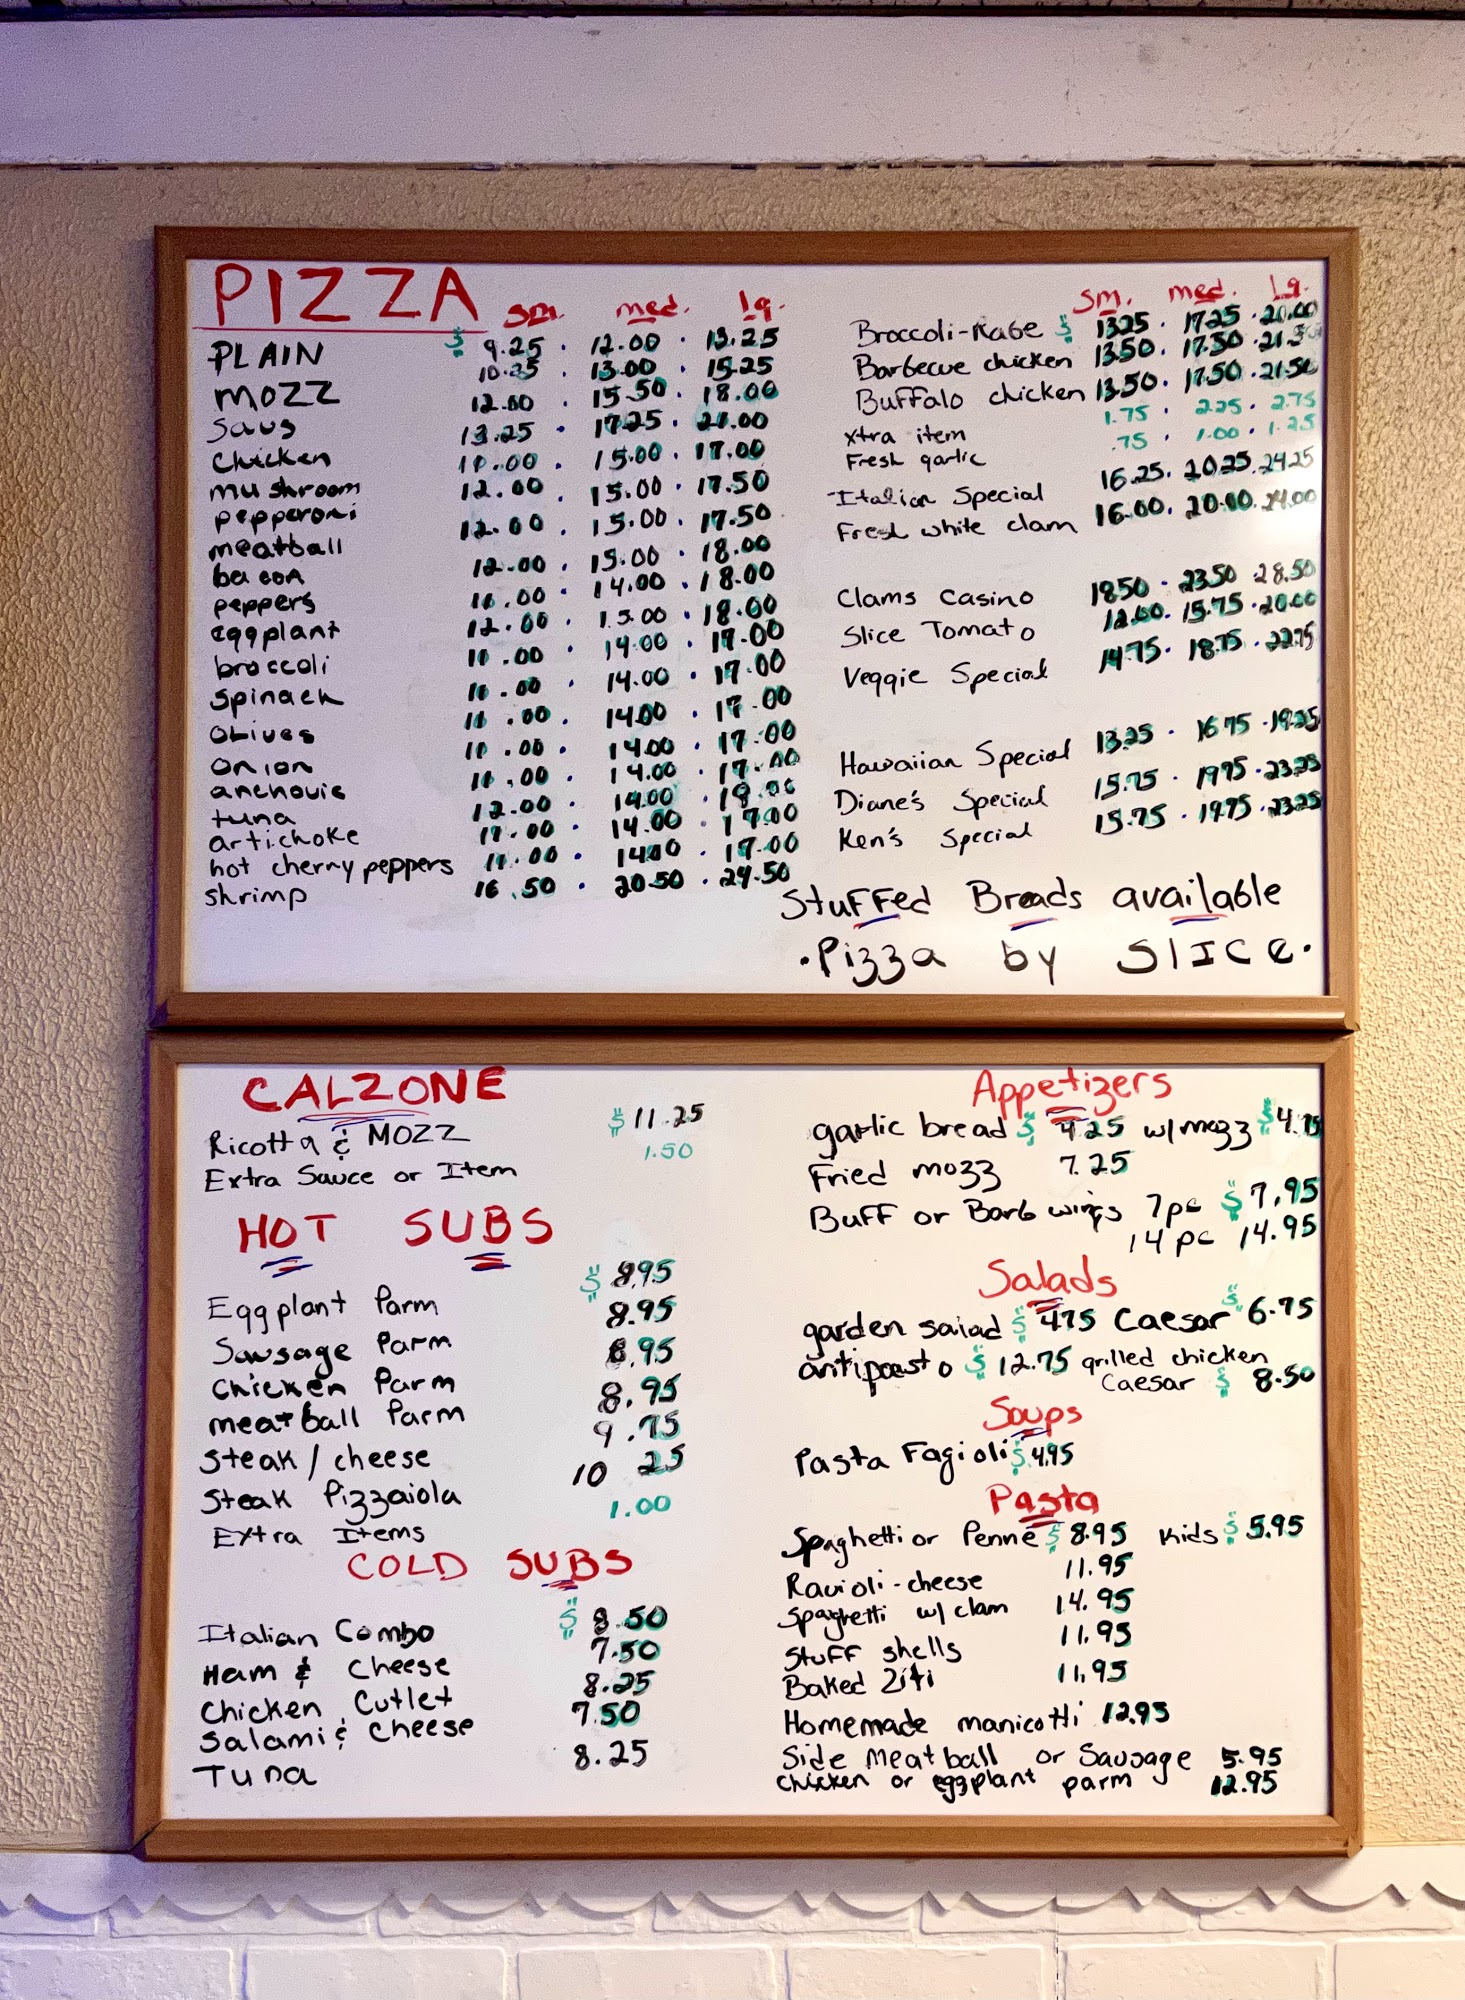 PIZZA sm. med. lg.
PLAIN $ 9.25 · 12.00 · 13.25
MOZZ 10.25 · 13.00 · 15.25
Saus 12.00 · 15.50 · 18.00
Chicken 13.25 · 17.25 · 21.00
mushroom 11.00 · 15.00 · 17.00
pepperoni 12.00 · 15.00 · 17.50
meatball 12.00 · 15.00 · 17.50
bacon 12.00 · 15.00 · 18.00
peppers 11.00 · 14.00 · 18.00
eggplant 12.00 · 15.00 · 18.00
broccoli 11.00 · 14.00 · 17.00
Spinach 11.00 · 14.00 · 17.00
Olives 11.00 · 14.00 · 17.00
onion 11.00 · 14.00 · 17.00
anchovie 11.00 · 14.00 · 17.00
tuna 12.00 · 14.00 · 18.00
artichoke 11.00 · 14.00 · 17.00
hot cherry peppers 11.00 · 14.00 · 17.00
shrimp 16.50 · 20.50 · 24.50
sm. med. lg.
Broccoli-Rabe $ 13.25 · 17.25 · 20.00
Barbecue chicken 13.50 · 17.50 · 21.50
Buffalo chicken 13.50 · 17.50 · 21.50
xtra item 1.75 · 2.25 · 2.75
Fresh garlic .75 · 1.00 · 1.25
Italian Special 16.25 · 20.25 · 24.25
Fresh white clam 16.00 · 20.00 · 24.00
Clams Casino 18.50 · 23.50 · 28.50
Slice Tomato 12.00 · 15.75 · 20.00
Veggie Special 14.75 · 18.75 · 22.75
Hawaiian Special 13.25 · 16.75 · 19.25
Diane's Special 15.75 · 19.75 · 23.25
Ken's Special 15.75 · 19.75 · 23.25
Stuffed Breads available
· Pizza by SLICE ·
CALZONE
Ricotta & MOZZ $ 11.25
Extra Sauce or Item 1.50
HOT SUBS
Eggplant Parm $ 8.95
Sausage Parm 8.95
Chicken Parm 8.95
meatball Parm 8.95
Steak / cheese 9.75
Steak Pizzaiola 10 25
Extra Items 1.00
COLD SUBS
Italian Combo $ 8.50
Ham & Cheese 7.50
Chicken Cutlet 8.25
Salami & Cheese 7.50
Tuna 8.25
Appetizers
garlic bread $ 4.25 w/ mozz $ 4.75
Fried mozz 7.25
Buff or Barb wings 7pc $ 7.95
14 pc 14.95
Salads
garden salad $ 4.75 Caesar $ 6.75
antipasto $ 12.75 grilled chicken
Caesar $ 8.50
Soups
Pasta Fagioli $ 4.95
Pasta
Spaghetti or Penne $ 8.95 Kids $ 5.95
Ravioli-cheese 11.95
Spaghetti w/ clam 14.95
Stuff shells 11.95
Baked Ziti 11.95
Homemade manicotti 12.95
Side Meatball or Sausage 5.95
chicken or eggplant parm 12.95